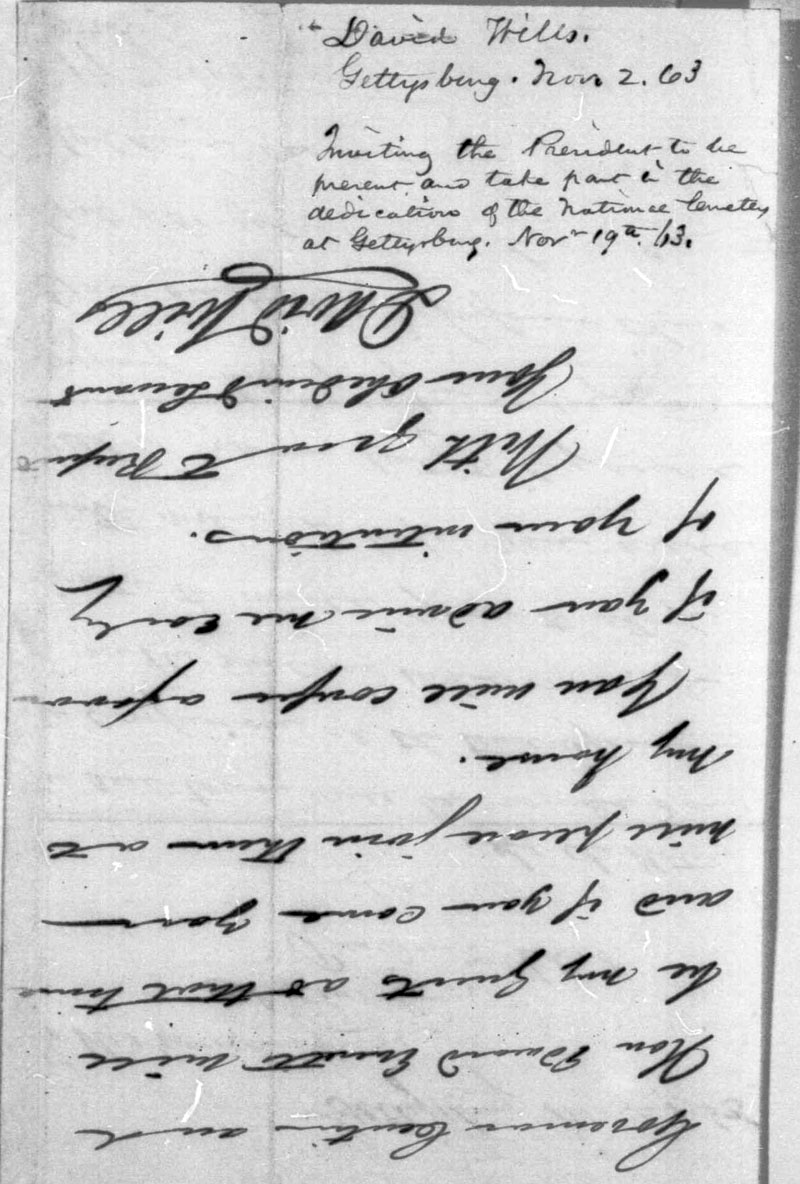 David Wills.
Gettysburg. Nov 2. 63
Inviting the President to be
present and take part in the
dedication of the National Cemetery
at Gettysburg. Novr 19th. 63.
Governor Curtin and
Hon Edward Everett will
be my guests at that time
and if you come you
will please join them at
my house.
You will confer a favor
if you advise me early
of your intentions.
With great Respect
Your Obedient Servant
David Wills